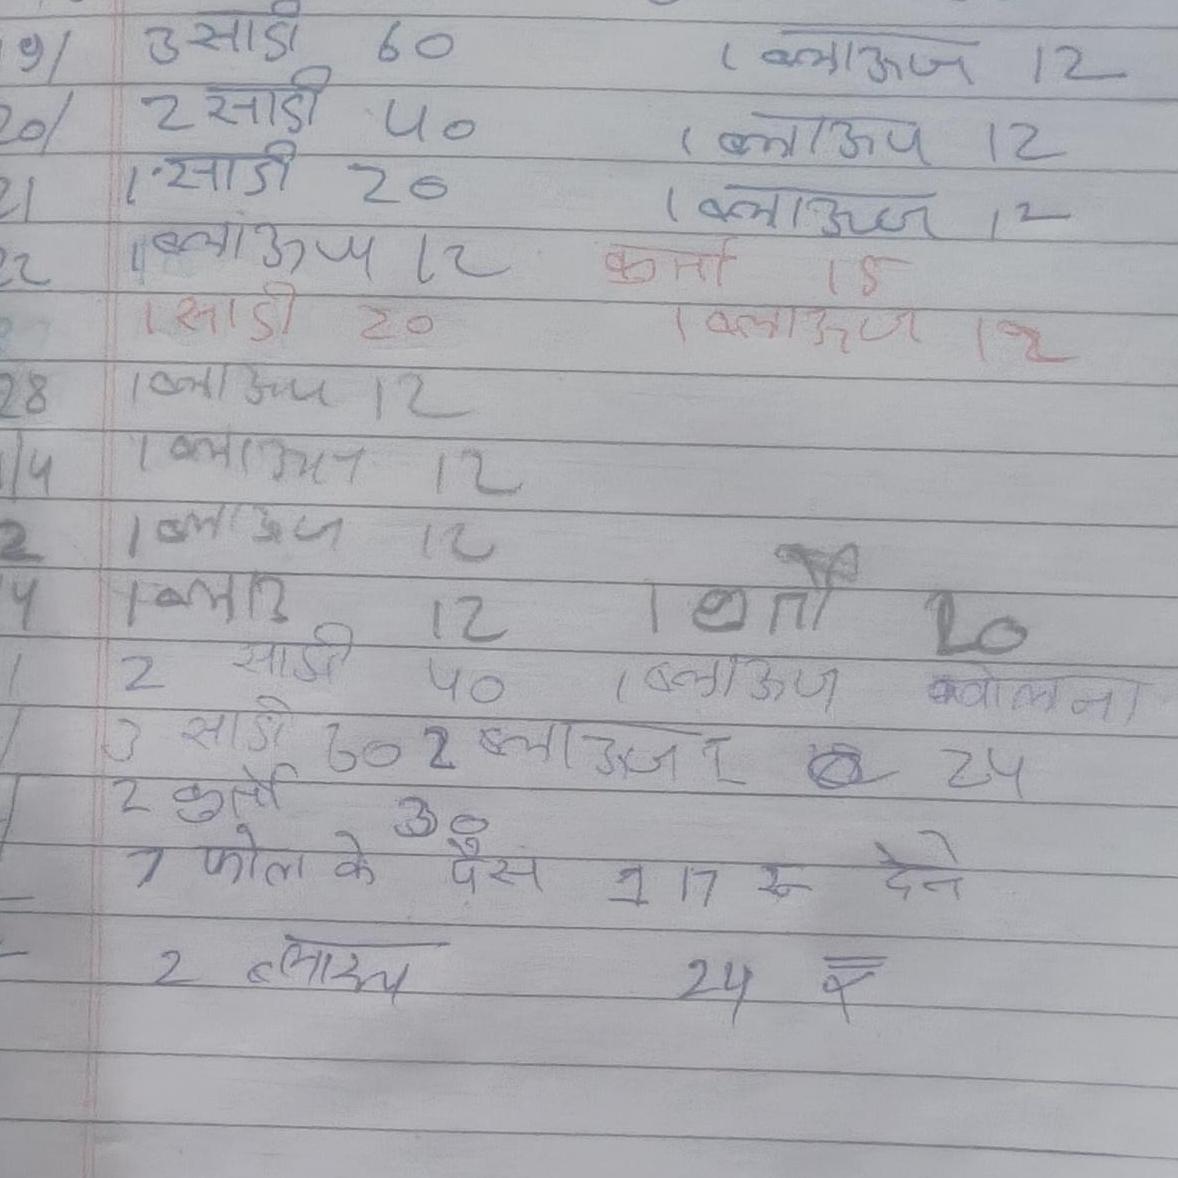 19/ 3 साडी 60 1 ब्लाऊज 12
20/ 2 साडी 40 1 ब्लाऊज 12
21 1 साडी 20 1 ब्लाऊज 12
22 1 ब्लाऊज 12 कुर्ता 15
1 साडी 20 1 ब्लाऊज 12
28 1 ब्लाऊज 12
1/4 1 ब्लाऊज 12
2 1 ब्लाऊज 12
4 1 ब्लाउ 12 1 20
2 साडी 40 1 ब्लाऊज
3 साडी 60 2 ब्लाऊज 24
2 कुर्ता 30
7 फोल के पैसे 117 रू देने
2 ब्लाउज 24 रु